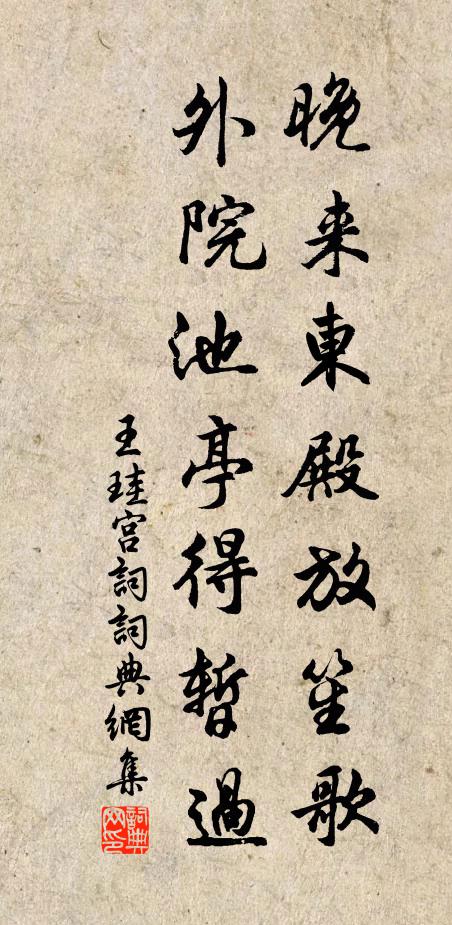 晚来東殿放笙歌
外院池亭得暫過
王珪宮詞詞典網集
詞典网印